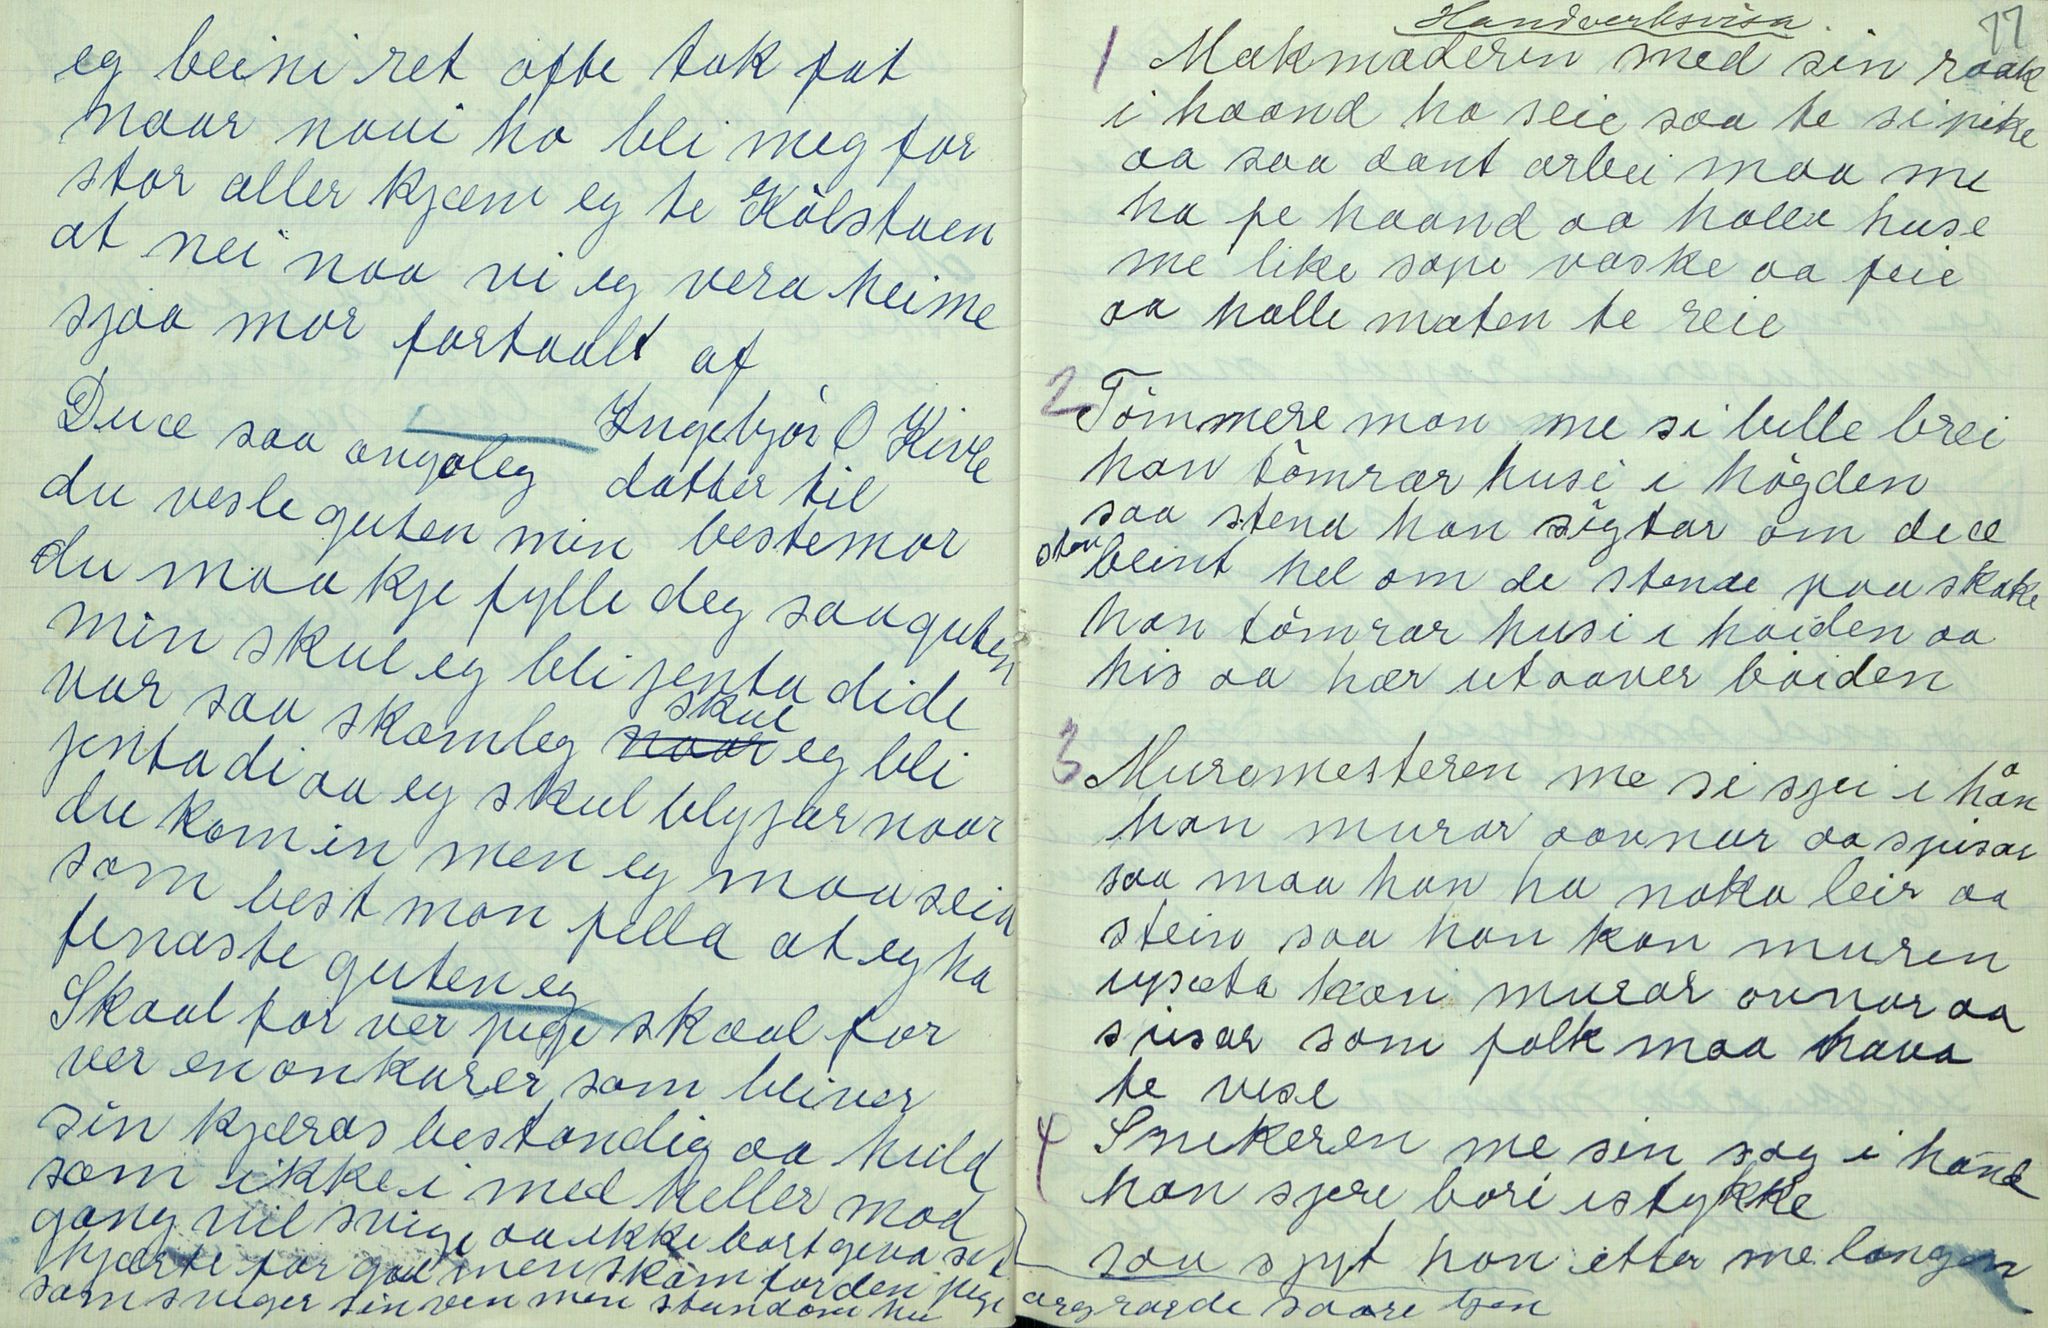 eg beini ret ofte tok fat
naar naai ho bli meg for
stor aller kjæm eg te Kölstaen
at nei naa vi eg vera heime
sjaa mor fortaalt af
Ingebjör O Kivle
datter til
bestemor
Du æ saa angaleg
du vesle guten min
du maa kje fylle deg saa guten
min skul eg bli jenta di de
var saa skamleg skul eg bli
jenta di aa eg skul blyjas naar
du kom in men eg maa seia
som best mon fella at eg ha
fenaste guten eg
Skaal for ver pige skaal for
ver en onkarer som bliver
sin kjæras bestandig aa huld
som ikke i med heller mod
gang vil svige aa ikke bort geva sit
hjærte for gul men skam for den pige
som sviger sin ven men stundom hu
angrarde saare tjen
77
Handverksvisa
1 Matmoderen med sin raak
i haand ho seie saa te si pike
aa saa dant arbei maa me
ha fe haand aa halla huse
me like sope vaske aa feie
aa halle maten te reie
2 Tömmere man me si bille brei
han tömrar husi i högden
saa stend han sigtar om de æ
beint hel om de stende paa skake
han tömrar husi i höiden aa
his aa hær utaaver böiden
3 Muromesteren me si sjei i hån
han murar aavnar aa spisar
saa maa han ha noka leir aa
stein saa han kan muren
upsæta han murar ovnar aa
spisar som folk maa hava
te vise
4 Snikeren me sin sag i hånd
han sjere bori istykke
saa spyt han etter me langen